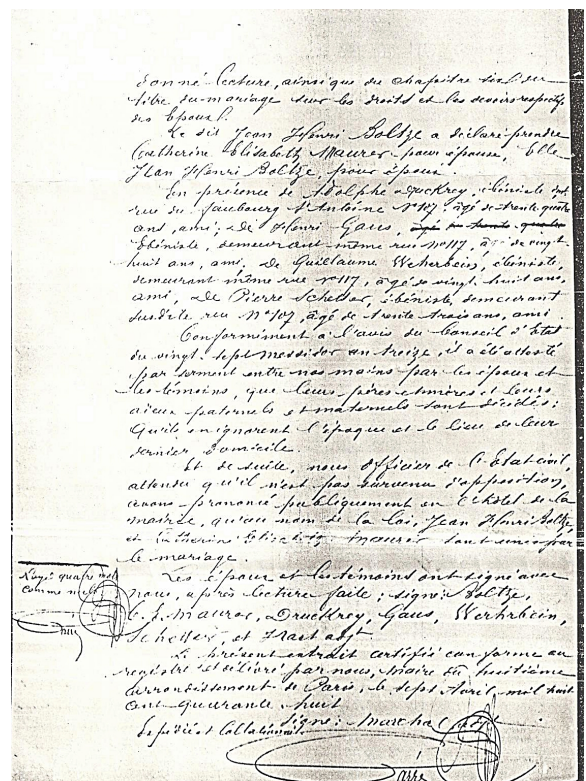 donné lecture, ainsi que du chapitre six du
titre du mariage sur les droits et les devoirs respectifs
des Epoux.
Le dit Jean Henri Boltze a déclaré prendre
Catherine Elisabeth Maurer pour épouse, Elle
Jean Henri Boltze pour époux.
En présence de Adolphe Druckrey, ébéniste
rue du faubourg St Antoine N° 107, âgé de trente quatre
ans, ami; De Henri Gaus,
Ebéniste, demeurant même rue N° 117, âgé de vingt
huit ans, ami, De Guillaume Wehrbein, ébéniste,
demeurant même rue N° 117, âgé de vingt huit ans,
ami, De Pierre Schetter, ébéniste, demeurant
susdite rue N° 107, âgé de trente trois ans, ami.
Conformément à l'avis du Conseil d'Etat
du vingt sept Messidor an treize, il a été attesté
par serment entre nos mains par les époux et
les témoins, que leurs pères et mères et leurs
aïeux paternels et maternels sont décédés;
Qu'ils en ignorent l'époque et le lieu de leur
dernier domicile.
Et de suite, nous Officier de l'Etat civil,
attendu qu'il n'est pas survenu d'opposition,
avons prononcé publiquement en l'hôtel de la
mairie, qu'au nom de la loi, Jean Henri Boltze,
et Catherine Elisabeth Maurer sont unis par
le mariage.
Rayé quatre mots
comme nuls
Les époux et les témoins ont signé avec
nous, après lecture faite; signé: Boltze,
C. E. Maurer, Druckrey, Gaus, Werhrbein,
Schetter, et
Le présent extrait certifié conforme au
registre et délivré par nous, Maire du huitième
arrondissement de Paris, le sept Avril mil huit
cent quarante huit
Signé: Marchal
Expédié et Collationné